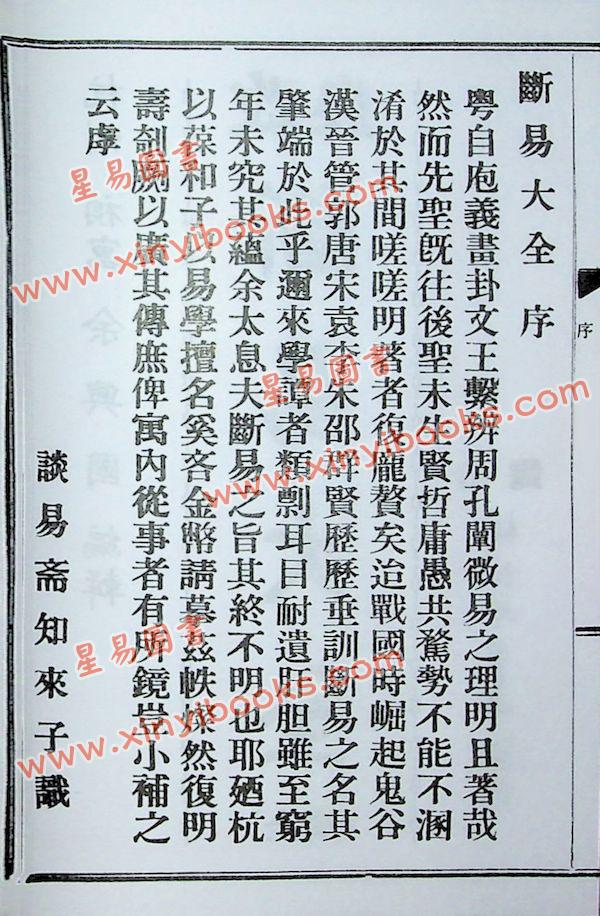 斷易大全序
粵自庖義畫卦文王繫辨周孔闡微易之理明且著哉
然而先聖既往後聖未生賢哲庸愚共騖勢不能不溷
淆於其間嗟嗟明著者復龐贅矣迨戰國時崛起鬼谷
漢晉管郭唐宋袁李朱邵群賢歷歷垂訓斷易之名其
肇端於此乎邇來學譚者類剽耳目耐遺肝胆雖至窮
年未究其蘊余太息夫斷易之旨其終不明也耶廼杭
以葆和子以易學擅名奚吝金幣請墓茲帙燦然復明
壽劊劂以廣其傳庶俾寓內從事者有所鏡豈小補之
云虖
談易斋知來子識
序
星易图書
www.xinyibooks.com
星易图書
www.xinyibooks.com
星易图書
www.xinyibooks.com
星易图書
www.xinyibooks.com